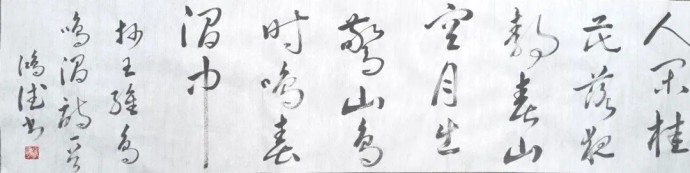 人闲桂
花落夜
静春山
空月出
驚山鸟
时鸣春
涧中
抄王维鸟
鸣涧诗一首
鸿书